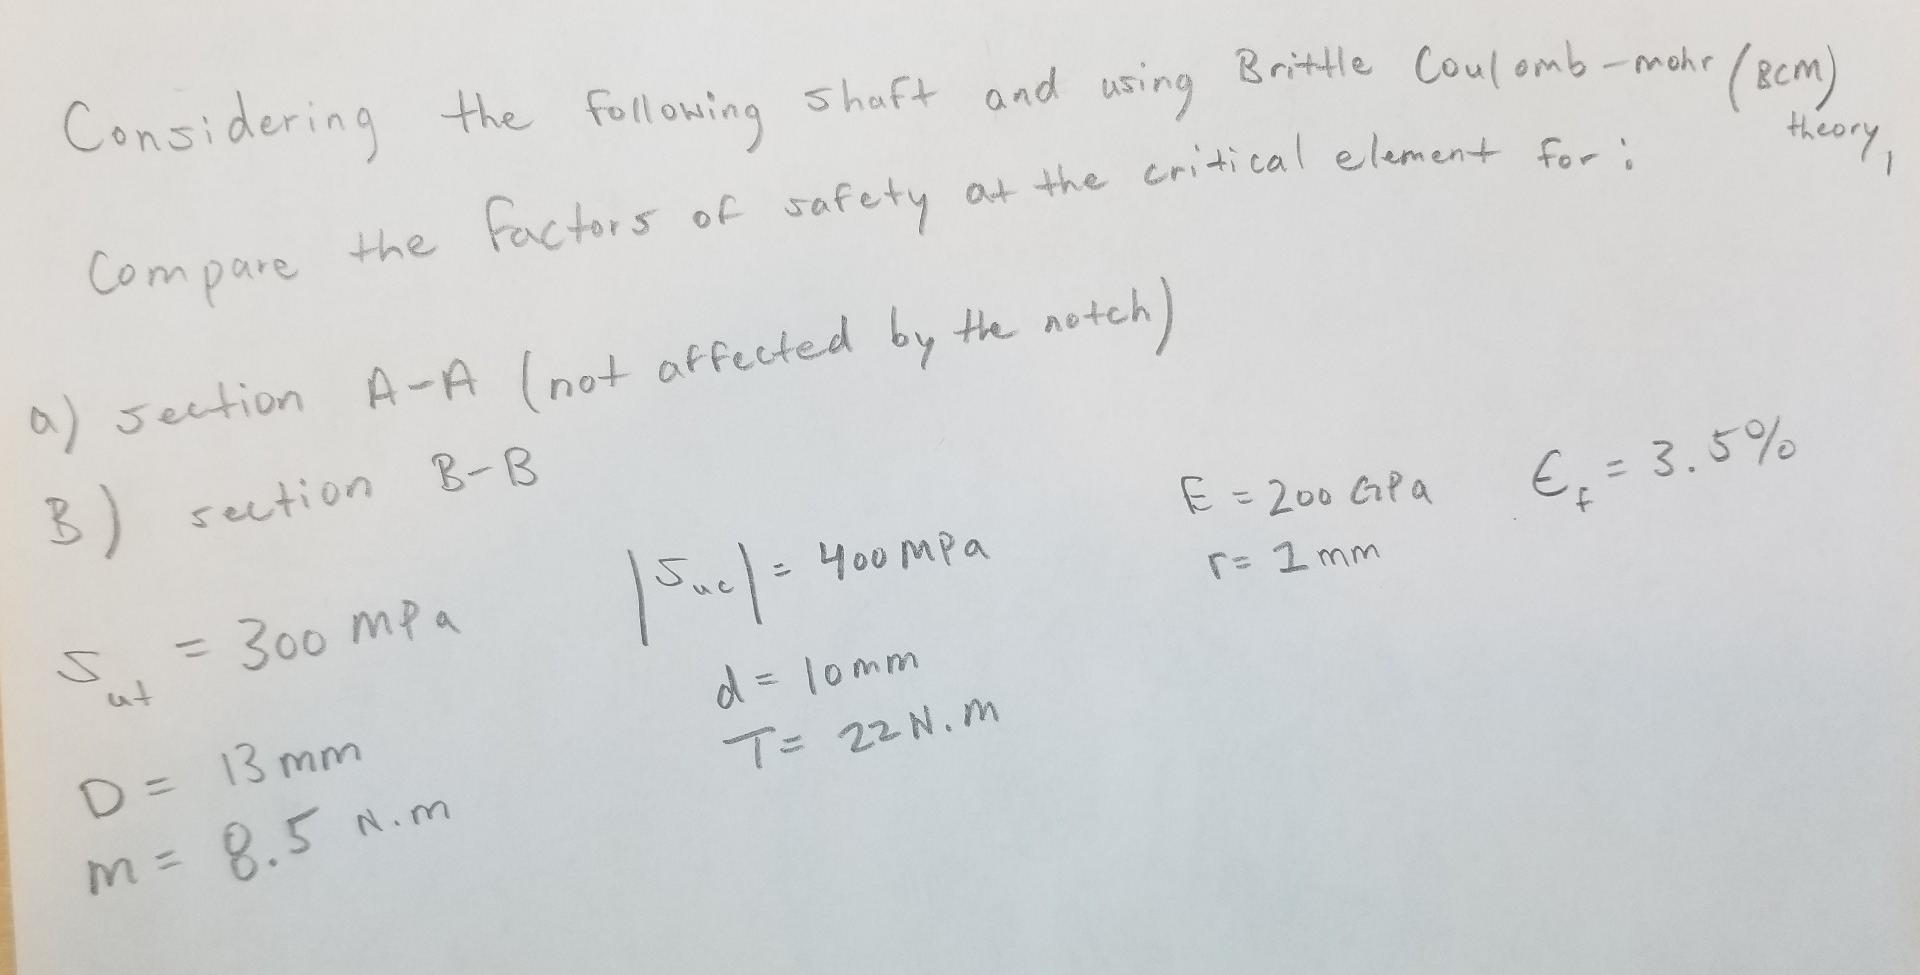 Considering the following shaft and using Brittle Coulomb-mohr (BCM) theory,
Compare the factors of safety at the critical element for:
a) section A-A (not affected by the notch)
B) section B-B
E = 200 GPa ϵf = 3.5%
Sut = 300 MPa |Suc| = 400 MPa r = 1 mm
D = 13 mm d = 10 mm
m = 8.5 N.m T = 22 N.m